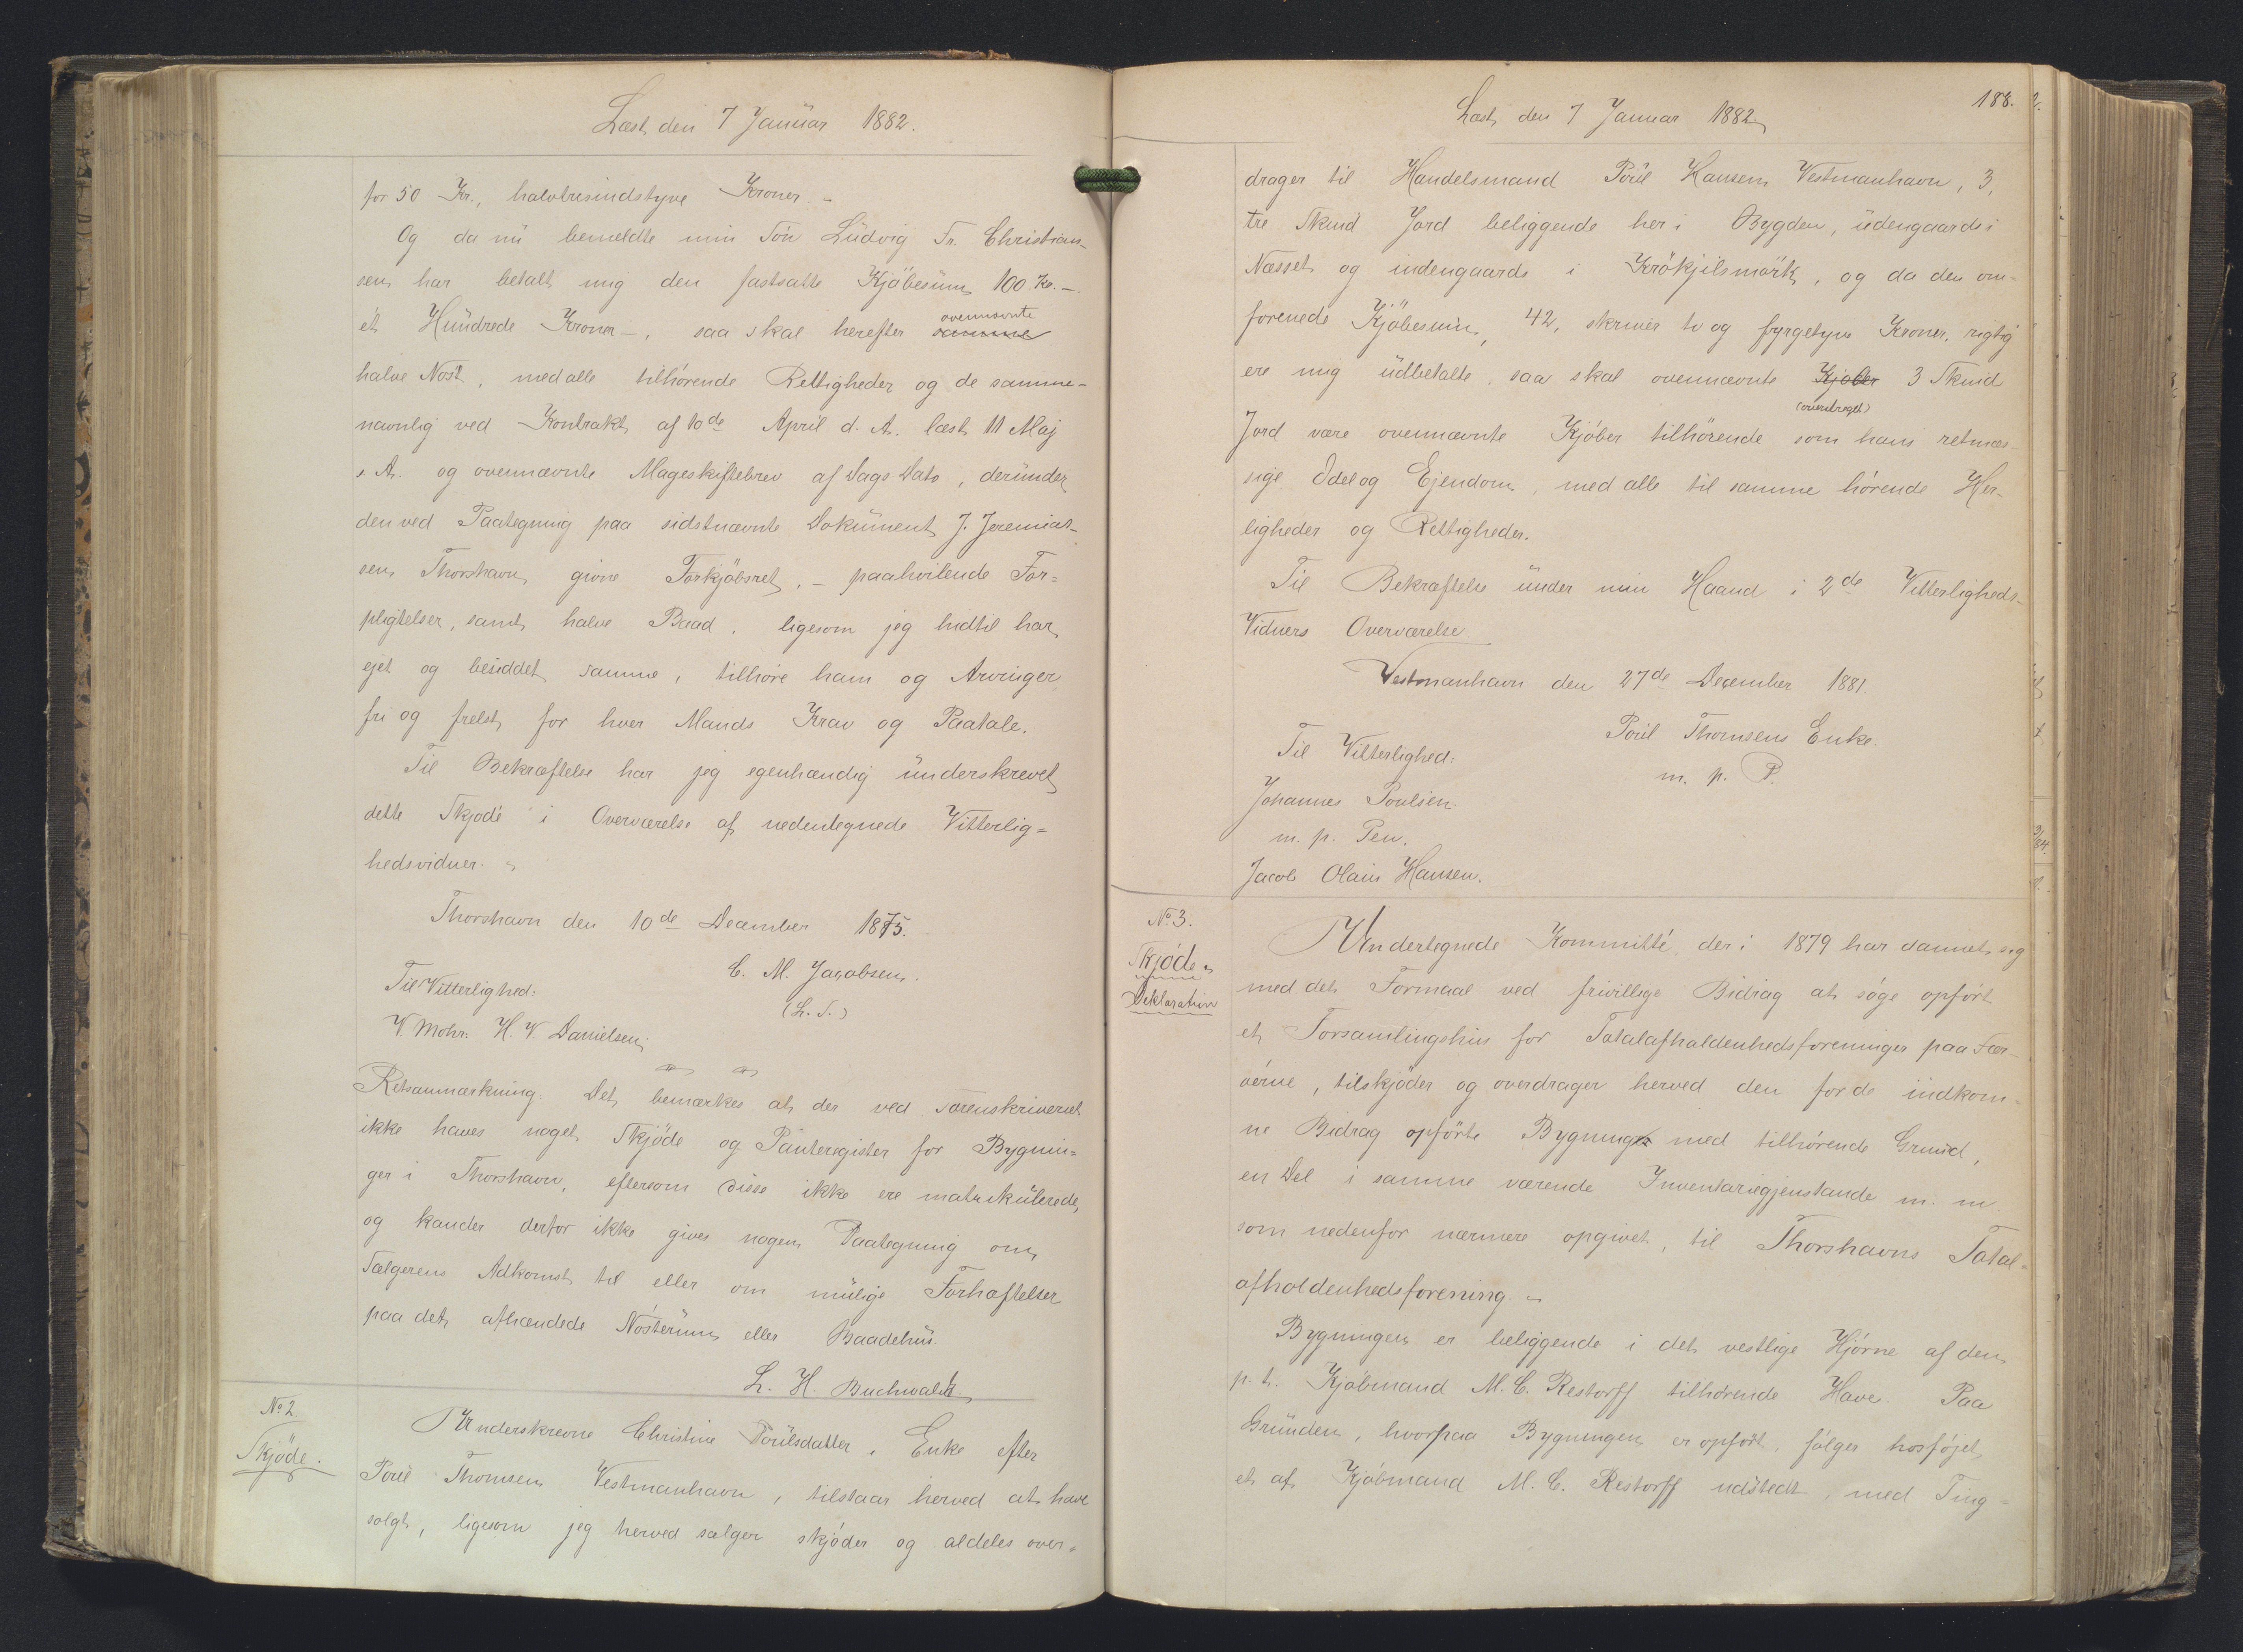 Læst den 7 Januar 1882.
for 50 Kr., halvtresindstyve Kroner. -
Og da nu bemeldte min Søn Ludvig Fr. Christian-
sen har betalt mig den fastsatte Kjøbesum 100 Kr. -
ét Hundrede Kroner -, saa skal herefter samme ovennævnte
halve Nøst, med alle tilhørende Rettigheder og de samme -
navnlig ved Kontrakt af 10de April d. A. læst 11 Maj
s. A. og ovennævnte Mageskiftebrev af Dags Dato, derunder
den ved Paategning paa sidstnævnte Dokument J. Jeremias-
sen Thorshavn givne Forkjøbsret, - paahvilende For=
pligtelser, samt halve Baad, ligesom jeg hidtil har
ejet og besiddet samme, tilhøre ham og Arvinger
fri og frelst for hver Mands Krav og Paatale.
Til Bekræftelse har jeg egenhændig underskrevet
dette Skjøde i Overværelse af nedentegnede Vitterlig=
hedsvidner. -
Thorshavn den 10de December 1875.
C. M. Jacobsen.
Til Vitterlighed:
(L. S.)
V. Mohr. H. V. Danielsen.
Retsanmærkning. Det bemærkes at der ved Sorenskriveriet
ikke haves noget Skjøde og Panteregister for Bygnin=
ger i Thorshavn, eftersom disse ikke ere matrikulerede,
og kan der derfor ikke gives nogen Paategning om
Sælgerens Adkomst til eller om mulige Forhæftelser
paa det afhændede Nøsterum eller Baadehus.
L. H. Buchwaldt
No 2
Skjøde.
Underskrevne Christine Poulsdatter, Enke efter
Poul Thomsen Vestmanhavn, tilstaar herved at have
solgt, ligesom jeg herved sælger skjøder og aldeles over=
188.
Læst den 7 Januar 1882
drager til Handelsmand Poul Hansen Vestmanhavn, 3,
tre Skind Jord beliggende her i Bygden, udengaards i
Næsset og indengaards i Krökjilsmørk, og da den om-
forenede Kjøbesum, 42, skriver to og fyrgetyve Kroner, rigtig
ere mig udbetalte, saa skal ovennævnte Kjøber 3 Skind
(overstreget)
Jord være ovennævnte Kjøber tilhørende som hans retmæs-
sige Odel og Ejendom, med alle til samme hørende Her-
ligheder og Rettigheder.
Til Bekræftelse under min Haand i 2de Vitterligheds-
Vidners Overværelse
Vestmanhavn den 27de December 1881.
Poul Thomsens Enke.
Til Vitterlighed:
m. p. P.
Johannes Poulsen.
m. p. Pen.
Jacob Olaus Hansen.
No 3.
Skjøde
Deklaration
Undertegnede Kommitté der i 1879 har dannet sig
med det Formaal ved frivillige Bidrag at søge opført
et Forsamlingshus for Totalafholdenhedsforeninger paa Fær-
øerne, tilskjøder og overdrager herved den for de indkom-
ne Bidrag opførte Bygning med tilhørende Grund,
en Del i samme værende Inventariegjenstande m. m.
som nedenfor nærmere opgivet, til Thorshavns Total=
afholdenhedsforening. -
Bygningen er beliggende i det vestlige Hjørne af den
p. t. Kjøbmand M. C. Restorff tilhørende Have. Paa
Grunden, hvorpaa Bygningen er opført, følger hosføjet,
et af Kjøbmand M. C. Restorff udstedt, med Ting=